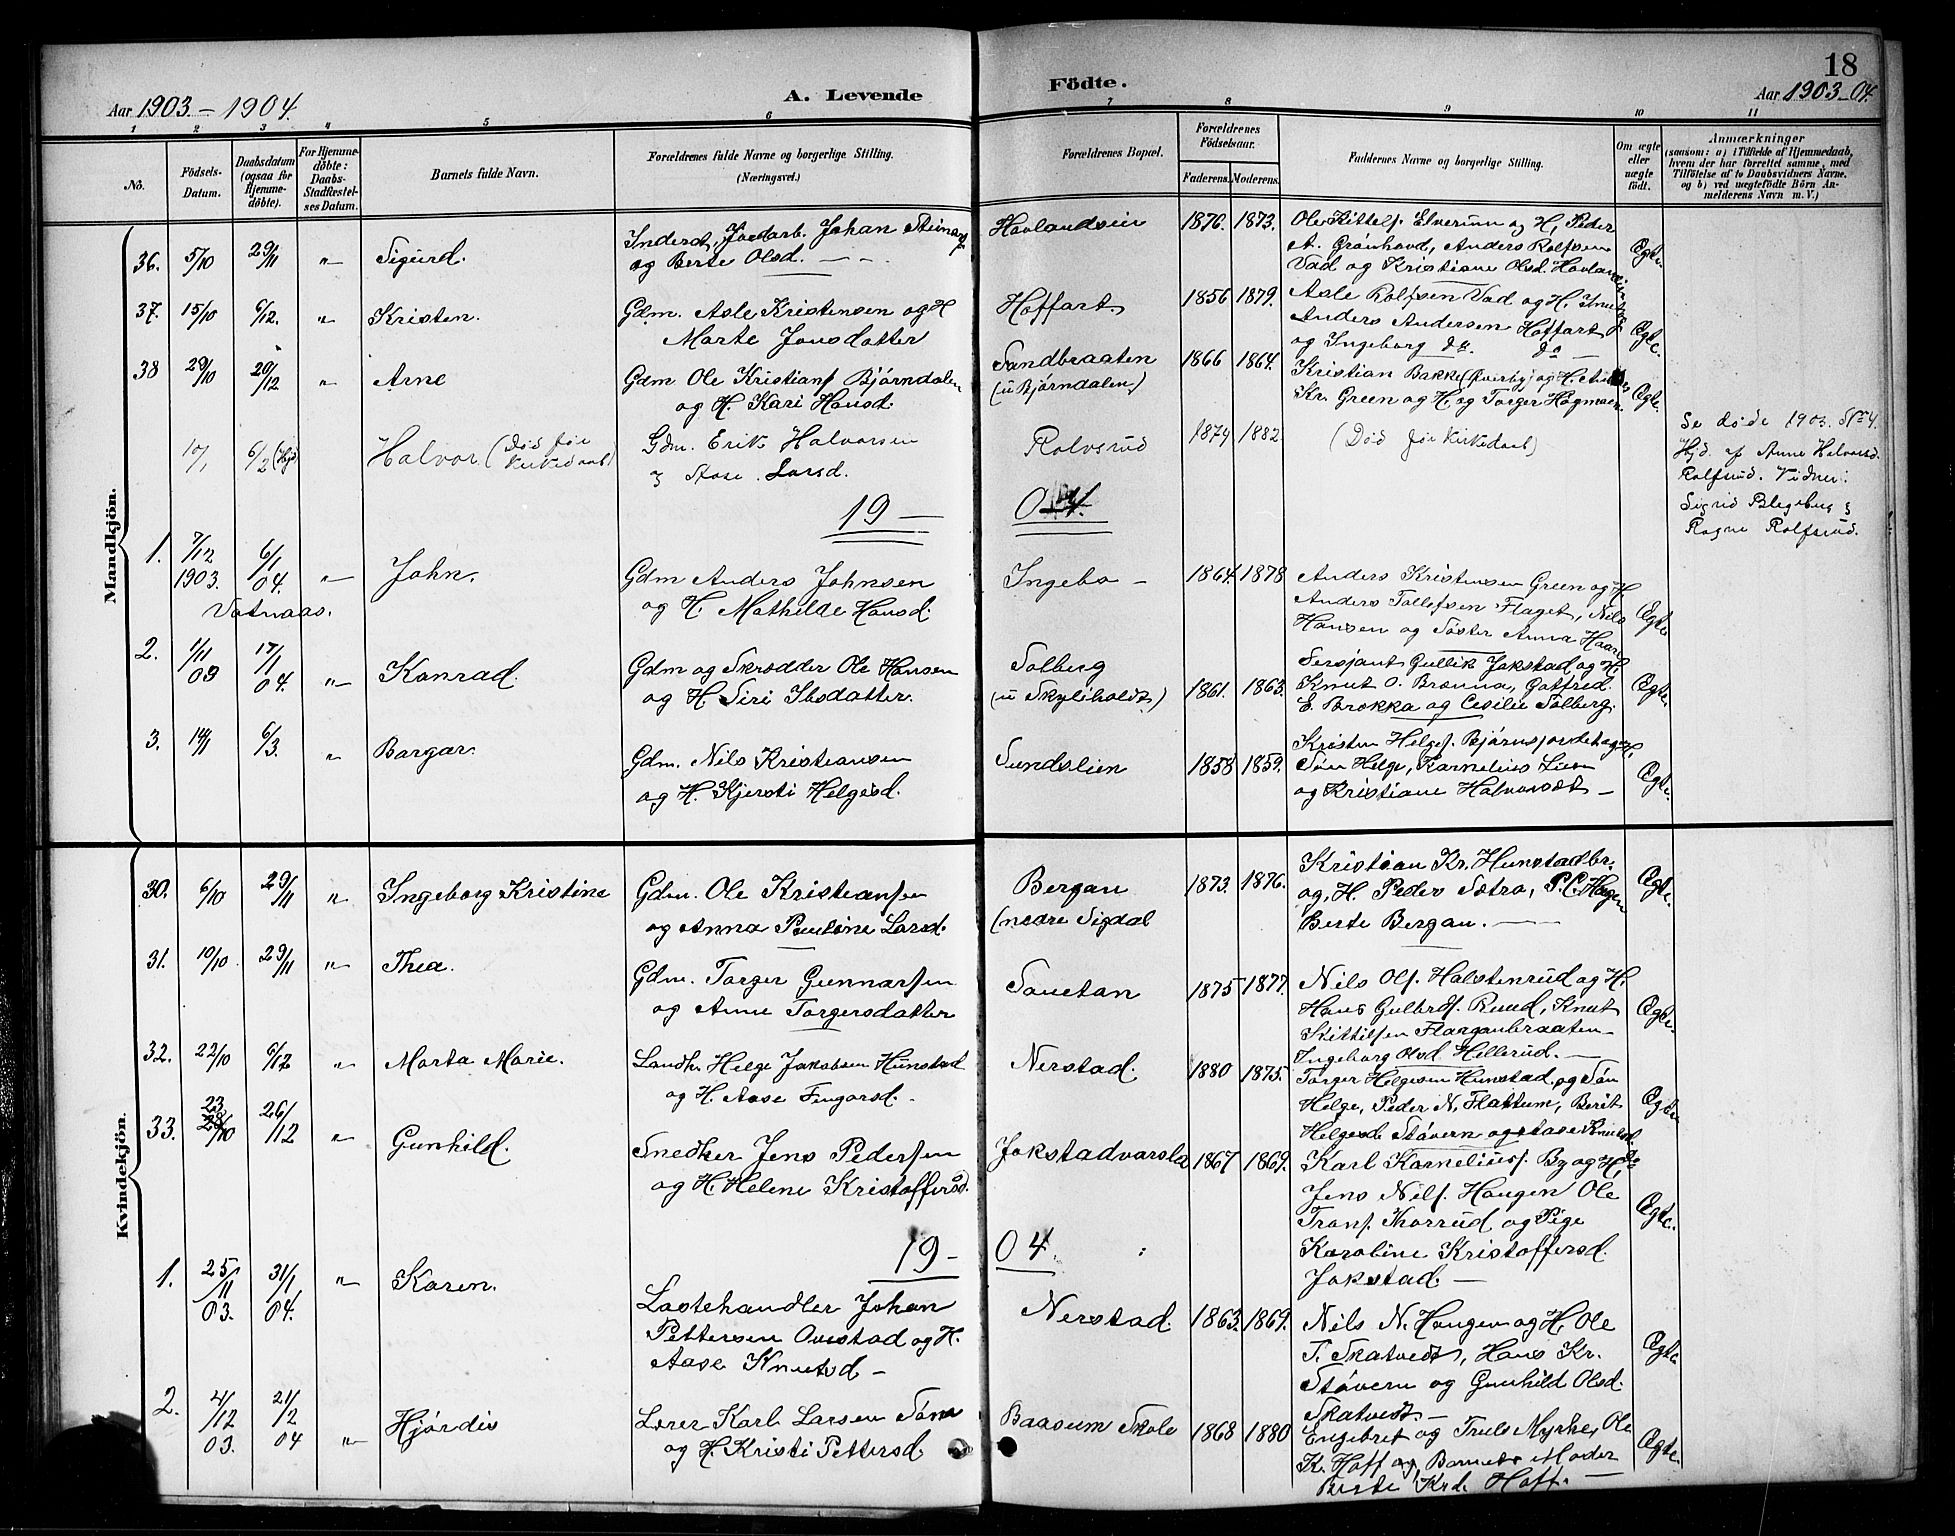 Aar 1903 – 1904.
A. Levende
Födte.
18
Aar 1903–04.
1 2 3 4 5 6 7 8 9 10 11
No.
Födsels-Datum.
Daabsdatum (ogsaa for Hjemme-döbte).
For Hjemme-döbte: Daabs-Stadfæstel-ses Datum.
Barnets fulde Navn.
Forældrenes fulde Navne og borgerlige Stilling. (Næringsvei.)
Forældrenes Bopæl.
Forældrenes Födselsaar.
Faderens. Moderens.
Faddernes Navne og borgerlige Stilling.
Om ægte eller uægte födt.
Anmærkninger
(saasom: a) i Tilfælde af Hjemmedaab, hvem der har forrettet samme, med Tilföielse af to Daabsvidners Navne. og b) ved uægtefödte Börn An-melderens Navn m. V.)
Mandkjön.
36. 5/10 29/11 " Sigurd.
Inderst, Jordarb. Johan
og Berte Olsd.
1876. 1873.
Ole Kittelf. Elverum og H, Peder
A. Grönhovd, Anders Rolfsen
Vad og Kristiane Olsd.
Ægte.
37. 15/10 6/12. " Kristen.
Gdm. Asle Kristensen og H
Marte Jonsdatter
Hoffart.
1856 1879.
Asle Rolfsen Vad og H.
Anders Andersen Hoffart
og Ingeborg do. do –
Ægte.
38 29/10 20/12 " Arne
Gdm Ole Kristianf Bjørndalen
og H. Kari Hansd.
Sandbraaten
(u Bjørndalen)
1866 1864.
Kristian Bakke (Överby) og H.
Kr. Green og H. og Torger Hagmoen.
Ægte.
10/1 6/2 (Hjd) Halvor (Död före kirkedaab)
Gdm. Erik Halvorsen
Aase Larsd.
Rolvsrud
1874 1882
(Död före Kirkedaab)
Se döde 1903. No 4.
Hjd. af Anne Halvorsd.
Rolfsrud. Vidner:
Sigrid
Ragne Rolfsrud.
19 – 04.
1. 7/12 1903. 6/1 04. " John.
Votnaas.
Gdm Anders Johnsen
og H. Mathilde Hansd.
Ingebo –
1864. 1878
Anders Kristensen Green og H.
Anders Tollefsen Flaget, Nils
Hansen og Søster Anna Haare
Ægte
2. 1/11 03 17/1 04. " Konrad.
Gdm og Skrædder Ole Hansen
og H. Siri Ibsdatter.
Solberg
1861. 1863.
Sersjant Gullik Jokstad og H
Knut O. Brænna, Gotfred
E. Brekka og Cesilie Solberg.
Ægte.
3. 14/1 6/3. " Borgar.
Gdm. Nils Kristiansen
og H. Kjersti Helgesd.
Sundslien
1858 1859.
Kristen Helgef.
Søn Helge, Karnelius Lien
og Kristiane Halvorsdt –
Ægte.
Kvindekjön.
30. 6/10 29/11 " Ingeborg Kristine
Gdm. Ole Kristiansen
og Anna Pauline Larsd.
Bergan
(nedre Sigdal
1873. 1876.
Kristian Kr. Hunstadbr.
og, H. Peder Sætra, P. C. Hagen
Berte Bergan. –
Ægte.
31. 10/10 29/11 " Thea.
Gdm. Torger Gunnarsen
og Anne Torgersdatter
1875 1877.
Nils Olf. Halstenrud og H.
Hans Gulbrdf. Ruud, Knut
Kittilsen Flaganbraaten –
Ingeborg Olsd. Hellerud. –
Ægte.
32. 22/10 6/12 " Marta Marie.
Landh. Helge Jakobsen Hunstad
og H. Aase Fingarsd.
Nerstad.
1880 1875.
Torger Helgesen Hunstad og Søn
Helge, Peder N. Flattum, Berit
Helgesd. Støvern og Aase Knutsd.
Ægte
33. 23/10 26/12 " Gunhild.
Snedker Jens Pedersen
og H. Helene Kristoffersd.
Jokstadvarsla
1867 1869.
Karl Karneliusf. By og H,
Jens Nilf. Haugen Ole
og Pige
Karoline Kristoffersd.
Jokstad. –
Ægte.
19 – 04.
1. 25/11 03. 31/1 04. " Karen.
Lastehandler Johan
Pettersen Overstad og H.
Aase Knutsd –
Nerstad.
1863. 1869.
Nils N. Haugen og H. Ole
T. Skatvedt, Hans Kr.
Støvern og Gunhild Olsd.
Skatvedt –
Ægte
2. 4/12 03. 21/2 04 " Hjördis
Lærer Karl Larsen
og H. Kristi Pettersd.
Baasum Skole
1868 1880
Engebret og Truls Myrhe, Ole
K. Hoff og Barnets Moder
Berte Krd. Hoff. –
Ægte.